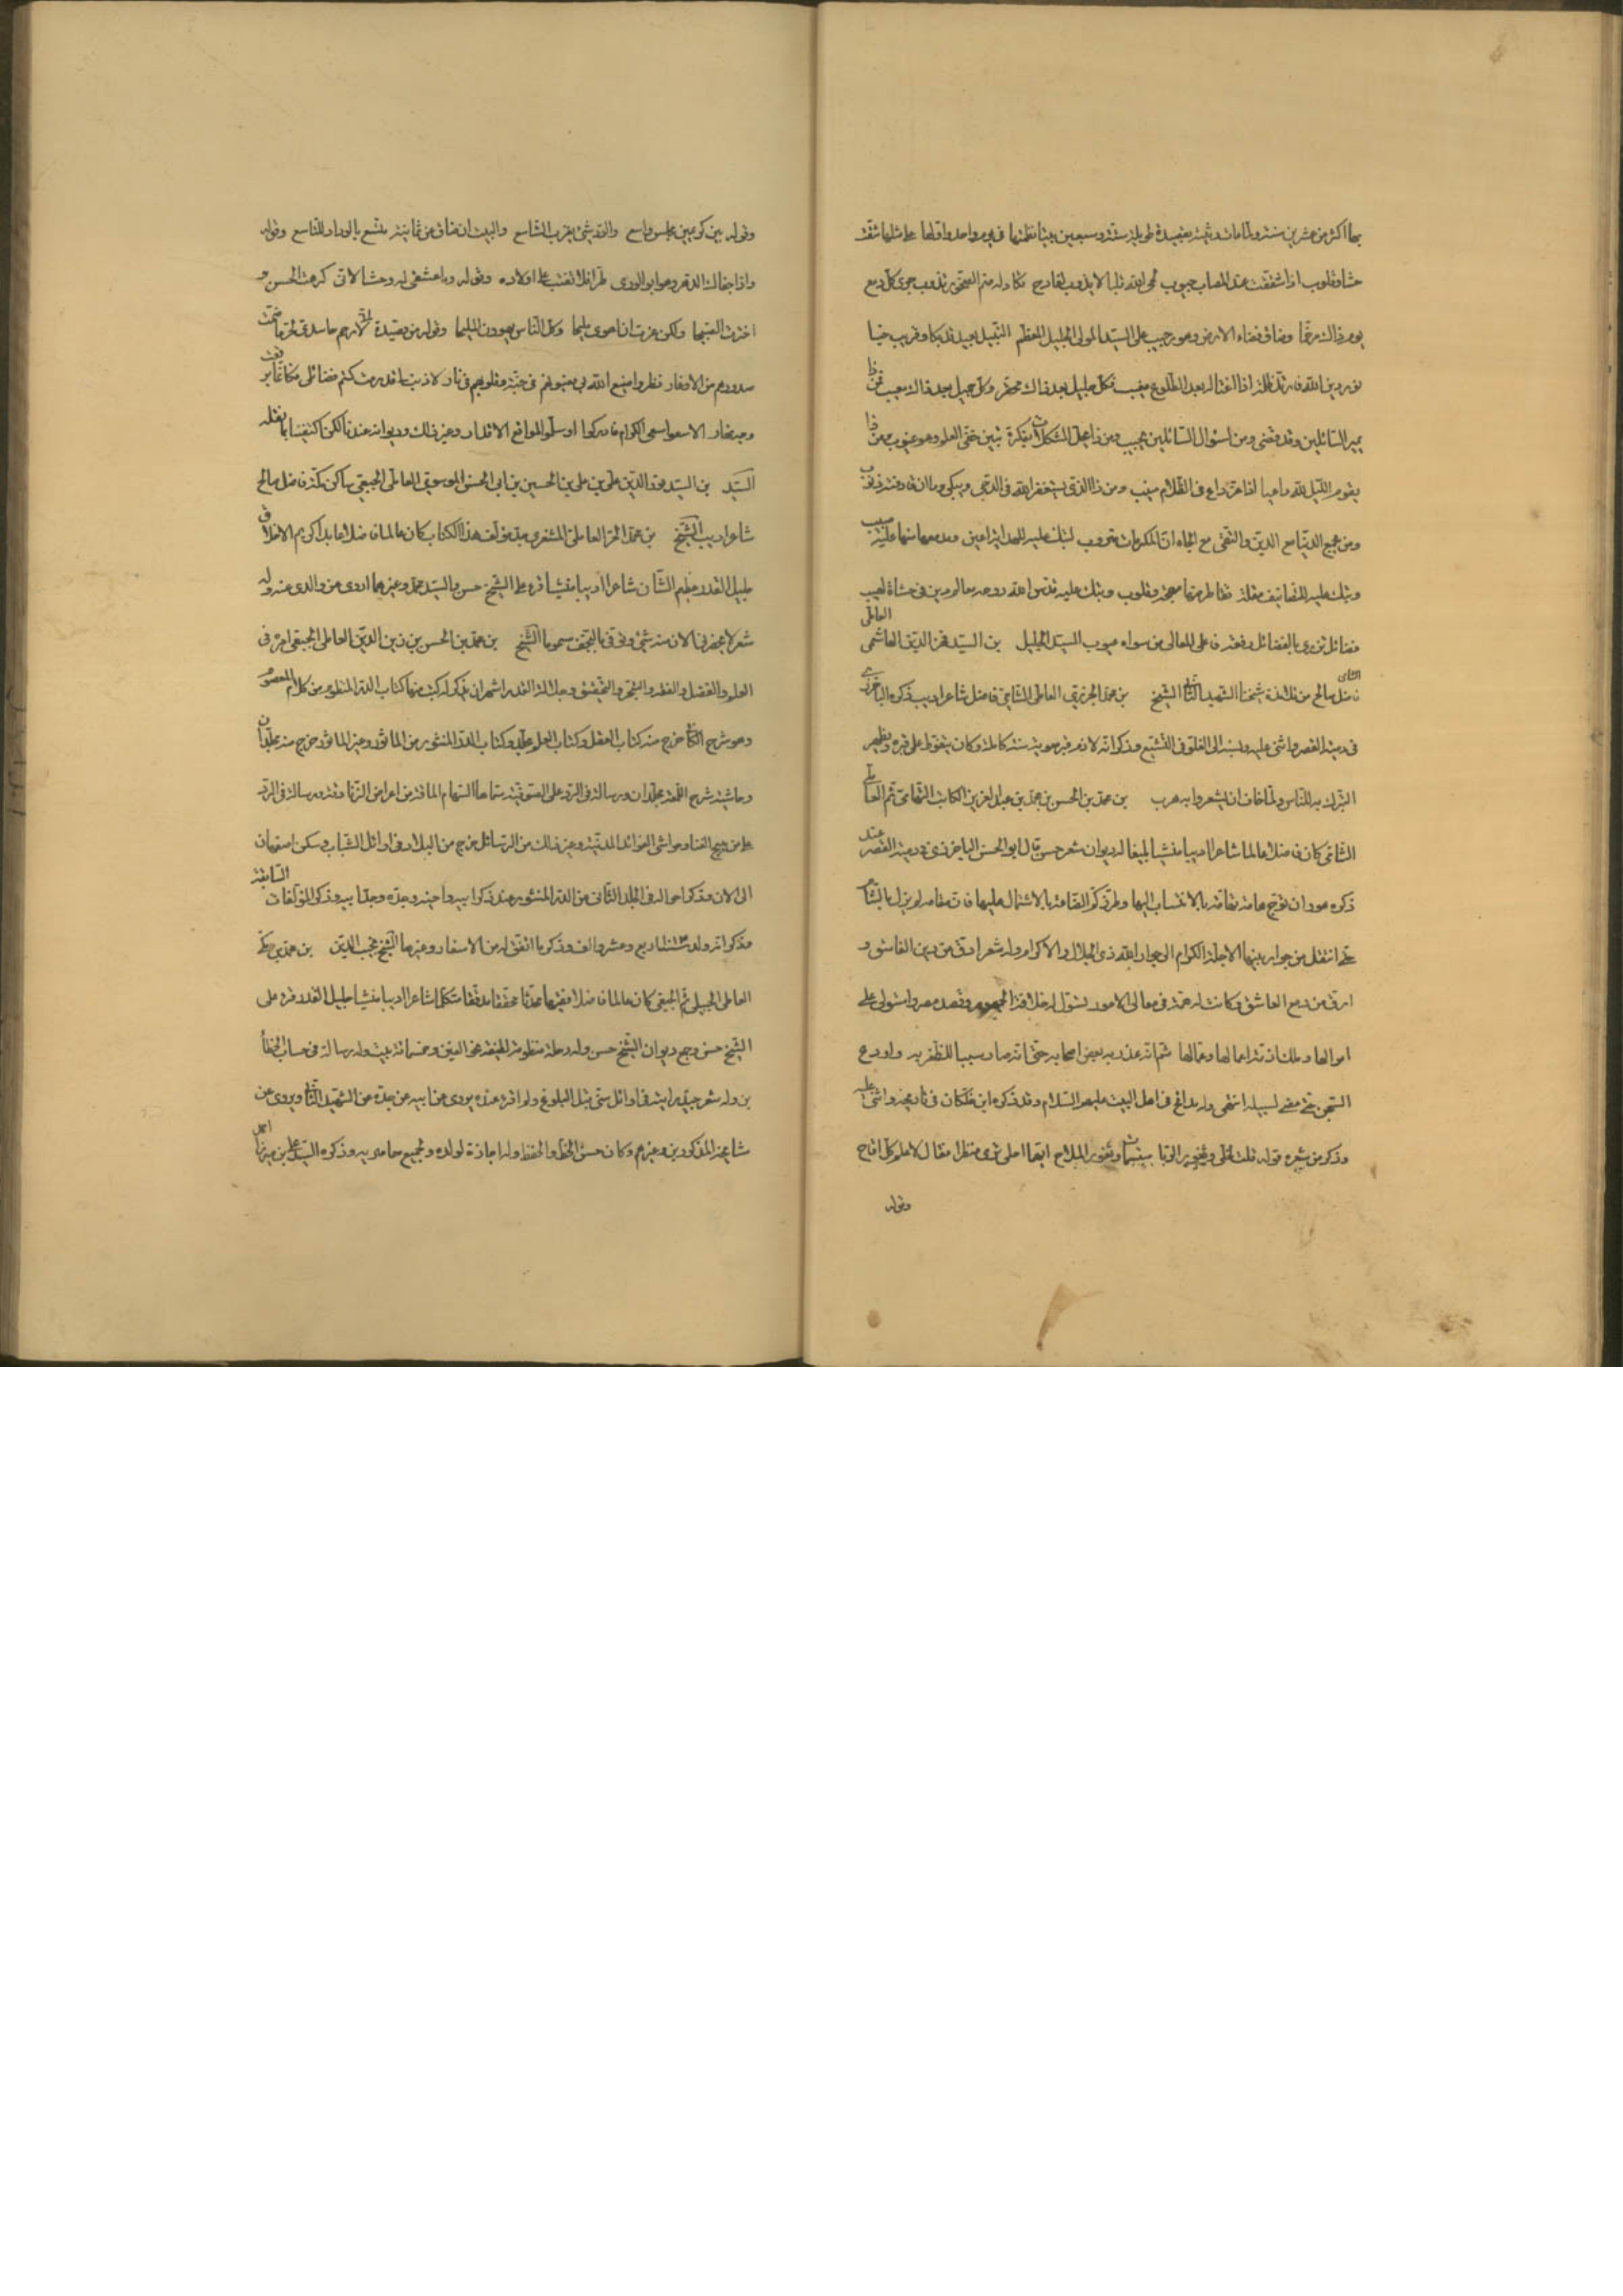 بها اكثر من عشرين سنة ولما مات رثيته بقصيدة طويلة ستة وسبعين بيتا نظمتها في يوم واحد واولها على مثلها شقت
حشا وقلوب اذا شققت عند المصاب جيوب لحى الله قلبا لا يذوب لفادح تكاد له صم الصخور تذوب جرى كل دمع
يوم ذاك مرخما وضاق فضاء الارض وهو رحيب على السيد المولى الجليل المعظم النبيل بعيد قد بكا وقريب خبا
نور دين الله فارتد ظلمة اذا اغتاله بعد الطلوع مغيب فكل جليل بعد ذاك محقر وكل جميل بعد ذاك معيب فمن ذا
يمير السائلين وقد قضى ومن لسؤال السائلين يجيب ومن ذا يحل المشكلات بفكرة تبين خفي العلم وهو غيوب ومن ذا
يقوم الليل لله داعيا اذا عز داع في الظلام منيب ومن ذا الذي يستغفر الله في الدجى ويبكي دما ان قارفته ذنوب
ومن يجمع الدنيا مع الدين والتقى مع الجاه ان المكرمات ضروب لتبك عليه للهداية اعين ومدمعها منها عليه صبيب
وتبك عليه للتصانيف مقلة تقاطر منها مهجة وقلوب وتبك عليه قدس الله روحه معالم دين في حشاه لهيب
فضائل تزري بالفضائل رفعة فاعلى المعالي من سواه عيوب السيد الجليل بن السيد فخر الدين الهاشمي العاملي
فاضل صالح من تلامذة شيخنا الشهيد الثاني الشيخ بن محمد الجزيني العاملي الشامي فاضل شاعر اديب ذكره الباخرزي
في دمية القصر واثنى عليه ونسبه الى الغلو في التشيع وذكر انه لازم قبر حوية سنة كاملة وكان يتغوط على قبره ويظهر
التبرك به للناس ولما خاف ان يشعروا به هرب بن محمد بن الحسن بن محمد بن عبد العزيز الكاتب التهامي ثم العاملي
الشامي كان فاضلا عالما شاعرا اديبا منشيا بليغا له ديوان شعر حسن قال ابو الحسن الباخرزي في دمية القصر عند
ذكره هو وان توج هامة تهامة بالانتساب اليها وطرز كم الصناعة بالاشتمال عليها فان مقامه لم يزل بالشام
حتى انتقل من جوار بنيها الاجلة الكرام الى جوار الله ذي الجلال والاكرام وله شعر ادق من دين الفاسق و
ارق من دمع العاشق وكانت له همة في معالي الامور تسول له خلافة الجمهور وقصد مصر واستولى على
اموالها وملك ازمة اعمالها وعمالها ثم انه غدر به بعض اصحابه حتى انه صار سببا للظفر به واودع
السجن حتى مضى لسبيله انتهى وله مدائح في اهل البيت عليهم السلام وقد ذكره ابن خلكان في تاريخه واثنى عليه
وذكر من شعره قوله قلت لخلي وثغور الربا مبتسمات وثغور الملاح ايهما احلى ترى منظرا فقال لا اعلم كل اقاح
وقوله
وقوله بين كريمين مجلس واسع والود شئ يقرب الشاسع والبيت ان ضاق عن ثمانية متسع بالوداد للتاسع وقوله
واذا جفاك الدهر وهو ابو الورى طرا فلا تعتب على اولاده وقوله وما عشقي له وحشا لاني كرهت الحسن و
اخترت القبيحا ولكن غرت ان اهوى مليحا وكل الناس يهوون المليحا وقوله من قصيدة اني لارحم حاسدي لحر ما ضمت
صدورهم من الاوغار نظروا صنيع الله بي فعيونهم في جنة وقلوبهم في نار لا ذنب لي قد رمت كتم فضائلي فكانما برقعت
وجه نهار الا سعوا سعي الكرام فادركوا او سلموا لمواقع الاقدار وغير ذلك وديوانه عندنا لكن اكتفينا بما نقله
السيد بن السيد نور الدين علي بن علي بن الحسين بن ابي الحسن الموسوي العاملي الجبعي ساكن مكة فاضل صالح
شاعر اديب الشيخ بن محمد الحر العاملي المشغري جد مؤلف هذا الكتاب كان عالما فاضلا عابدا كريم الاخلاق
جليل القدر عظيم الشان شاعرا اديبا منشيا قرء على الشيخ حسن والسيد محمد وغيرهما اروي عن والدي عنه وله
شعر لا يحضرني الان منه شئ وتوفي بالنجف مسموما الشيخ بن محمد بن الحسن بن زين الدين العاملي الجبعي امره في
العلم والفضل والفقه والتبحر والتحقيق وجلالة القدر اشهر ان يذكر له كتب منها كتاب الدر المنظوم من كلام المعصوم
وهو شرح الكافي خرج منه كتاب العقل وكتاب العلم مجلد وكتاب الدر المنثور من الماثور وغير الماثور خرج منه مجلدان
وحاشية شرح اللمعة مجلدان ورسالة في الرد على الصوفية سماها السهام المارقة من اعراض الزنادقة ورسالة في الرد
على من يبيح الغنا وحواشي الفوائد المدنية وغير ذلك من الرسائل خرج من البلاد في اوائل الشباب وسكن اصفهان
الى الان وذكر احواله في المجلد الثاني من الدر المنثور عند ذكر ابيه واخيه وجده وجد ابيه وذكر المؤلفات السابقة
وذكر انه ولد سنة ١٠١٣ اربع وعشر والف وذكر ما اتفق له من الاسفار وغيرها الشيخ نجيب الدين بن محمد بن مكي
العاملي الجبيلي ثم الجبعي كان عالما فاضلا فقيها محدثا محققا مدققا متكلما شاعرا اديبا منشيا جليل القدر قرء على
الشيخ حسن وجمع ديوان الشيخ حسن وله رحلة منظومة لطيفة نحو الفين وخمسمائة بيت وله رسالة في حساب الخطأ
ين وله شعر جيد رايته في اوائل سني قبل البلوغ ولم اقرء عنده يروي عن ابيه عن جده عن الشهيد الثاني ويروي عن
مشايخه المذكورين وغيرهم وكان حسن الخط والحفظ وله اجازة لولده ولجميع معاصريه وذكره السيد علي بن ميرزا احمد